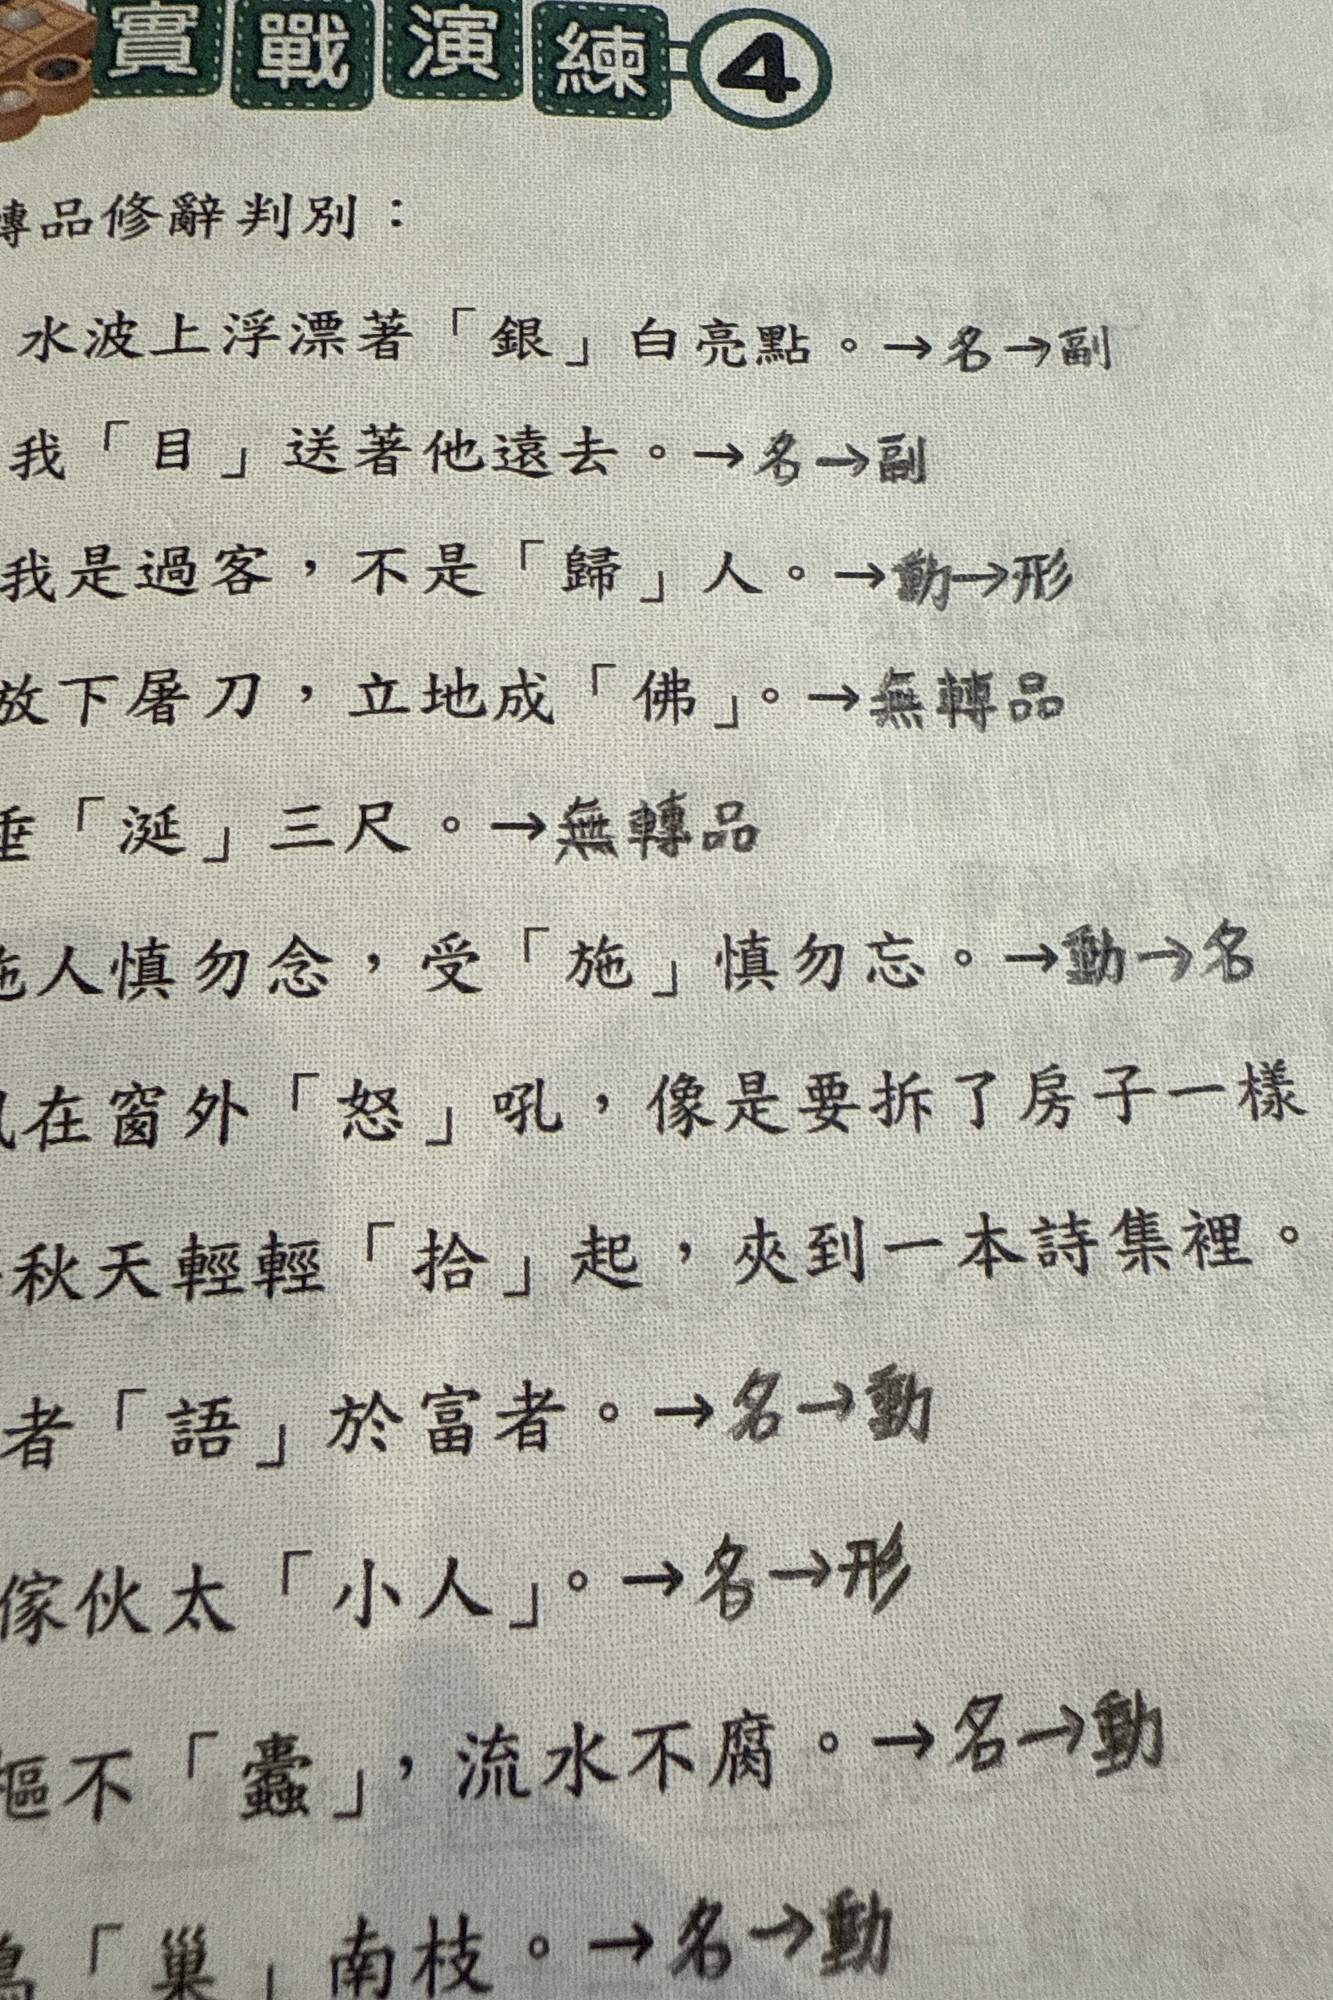 實戰演練4
轉品修辭判別：
水波上浮漂著「銀」白亮點。→名→副
我「目」送著他遠去。→名→副
我是過客，不是「歸」人。→動→形
放下屠刀，立地成「佛」。→無轉品
垂「涎」三尺。→無轉品
施人慎勿念，受「施」慎勿忘。→動→名
風在窗外「怒」吼，像是要拆了房子一樣
秋天輕輕「拾」起，夾到一本詩集裡。
者「語」於富者。→名→動
傢伙太「小人」。→名→形
樞不「蠹」，流水不腐。→名→動
鳥「巢」南枝。→名→動